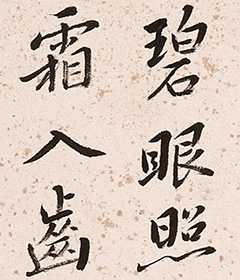 碧眼照
霜入齒